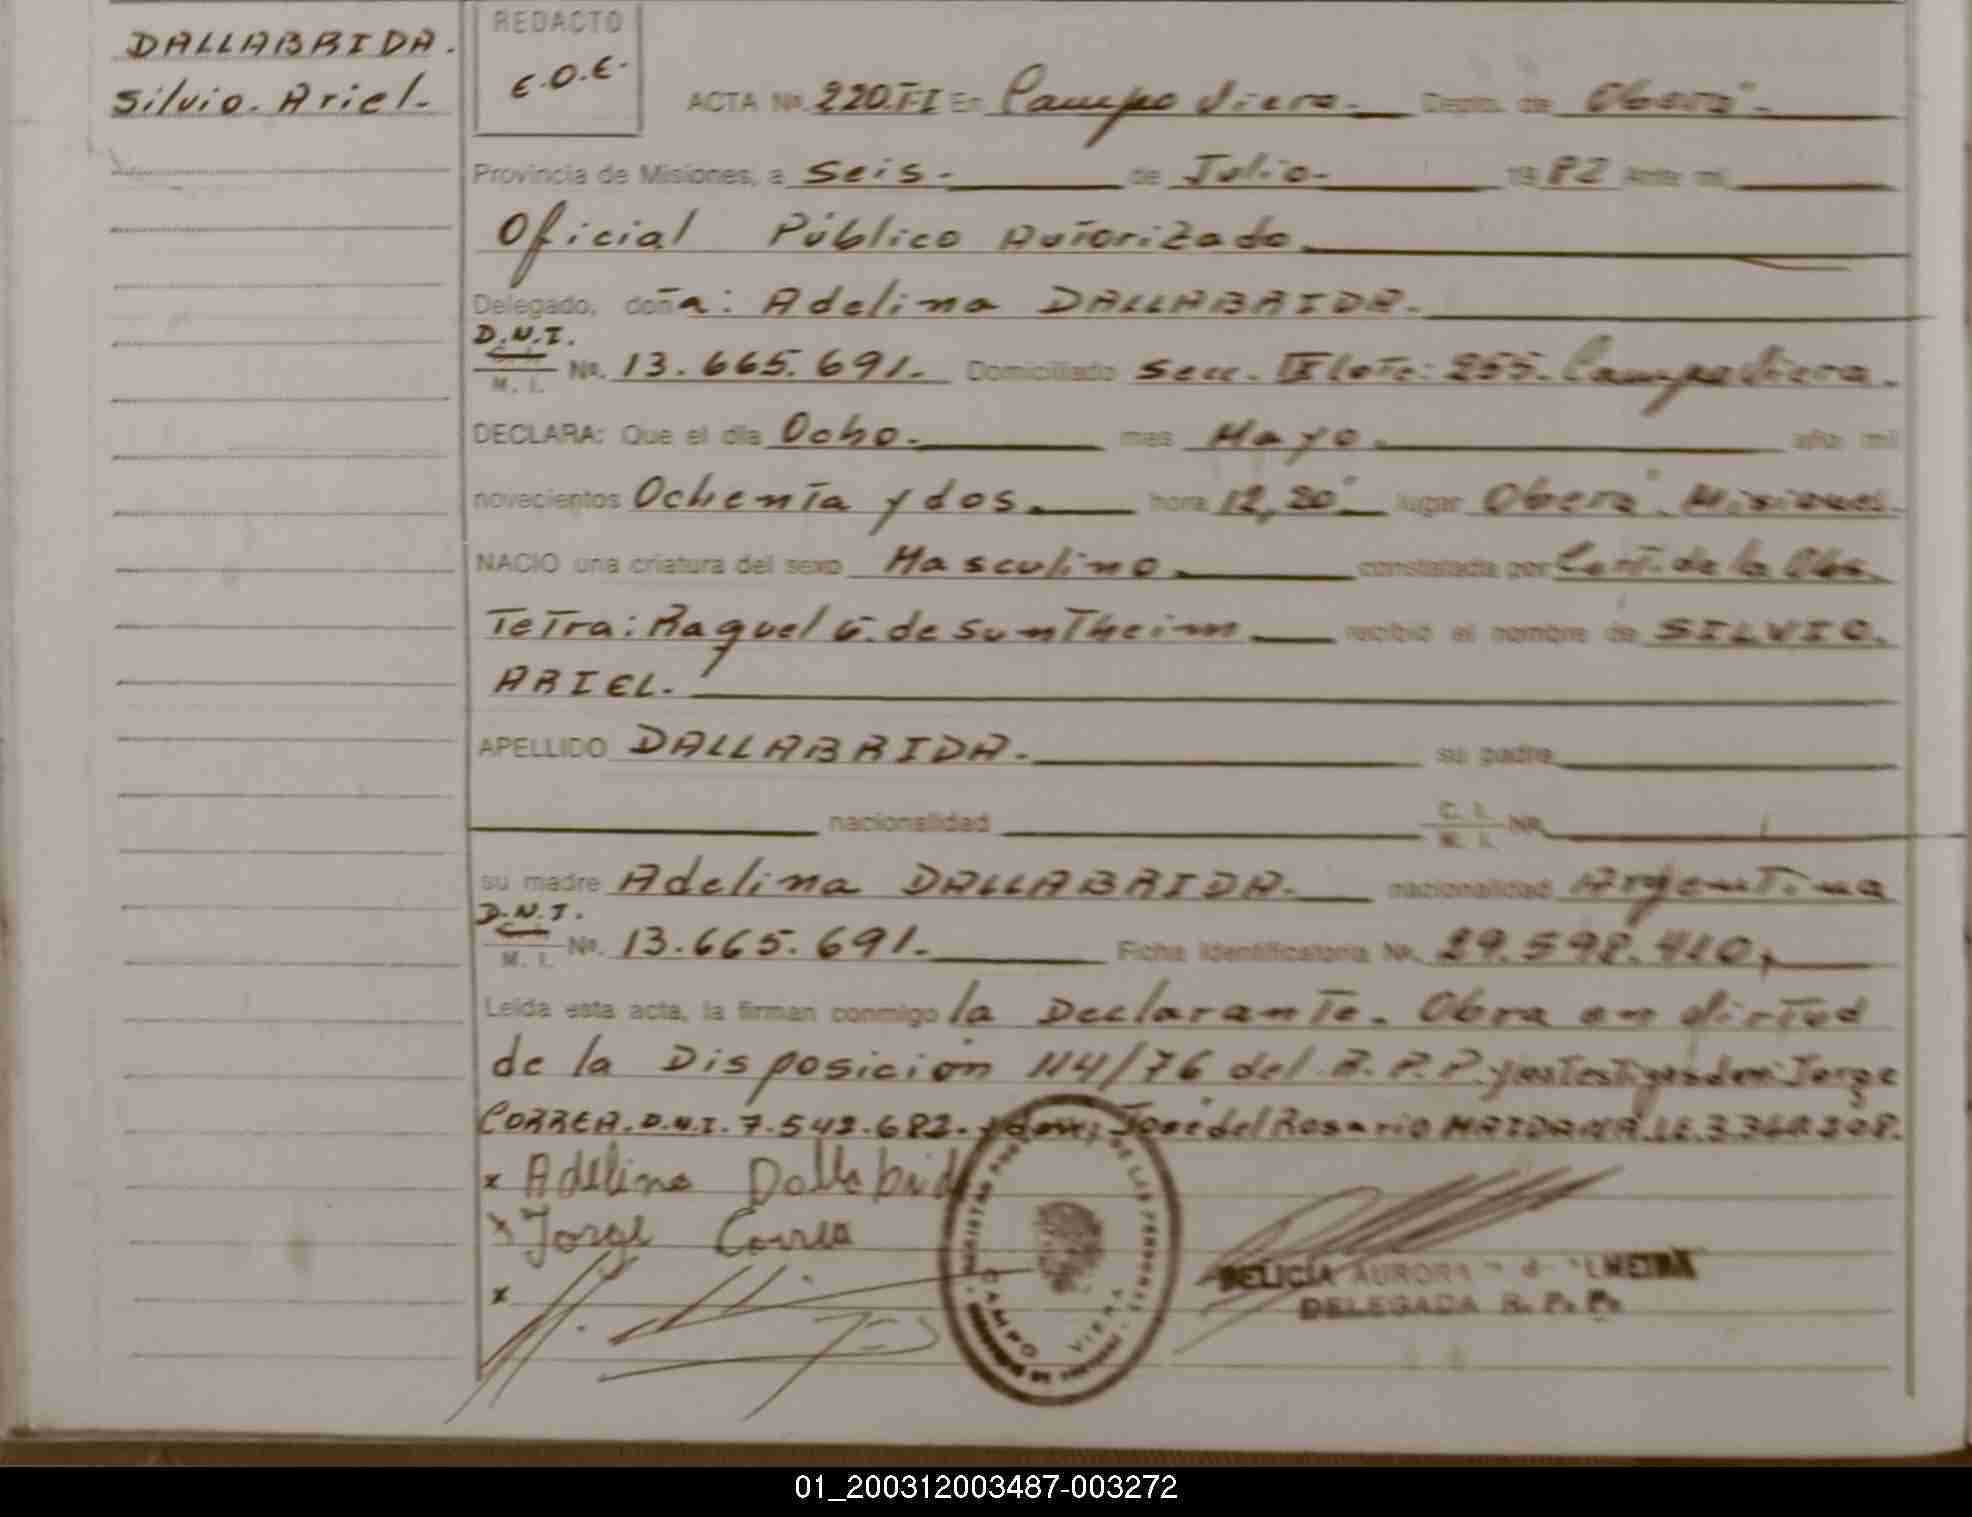 DALLABRIDA.
Silvio. Ariel.
REDACTO
E.O.E.
ACTA Nº 220.T-I En Campo Viera. Depto. de Oberá.
Provincia de Misiones, a Seis. de Julio. 1982 Ante mi
Oficial Público Autorizado.
Delegado, doña: Adelina DALLABRIDA.
D.N.I.
M. I. Nº. 13.665.691. Domiciliado Secc. IX Lote: 255. Campo Viera.
DECLARA: Que el día Ocho. mes Mayo. año mil
novecientos Ochenta y dos. hora 12,20 lugar Oberá. Misiones.
NACIO una criatura del sexo Masculino. constatada por Cert. de la Obs
Tetra: Raquel G. de Suntheim recibió el nombre de SILVIO.
ARIEL.
APELLIDO DALLABRIDA. su padre
nacionalidad C. I. M. I. Nº
su madre Adelina DALLABRIDA. nacionalidad Argentina
D.N.I.
M. I. Nº. 13.665.691. Ficha Identificatoria Nº. 29.598.410.
Leída esta acta, la firman conmigo la Declarante. Obra en virtud
de la Disposición 114/76 del R.P.P. y los testigos don: Jorge
CORREA. D.N.I. 7.542.682. y don: José del Rosario MAIDANA. L.E. 3.360.308.
x Adelina Dallabrid
x Jorge Correa
x
CAMPO VIERA
DELICIA AURORA
DELEGADA R. P. P.
01_200312003487-003272